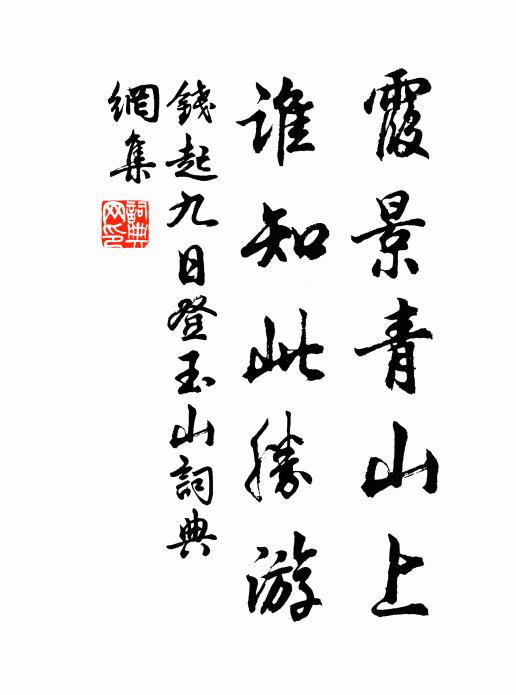 霞景青山上
誰知此勝游
錢起九日登玉山詞典
網集
詞典
网印